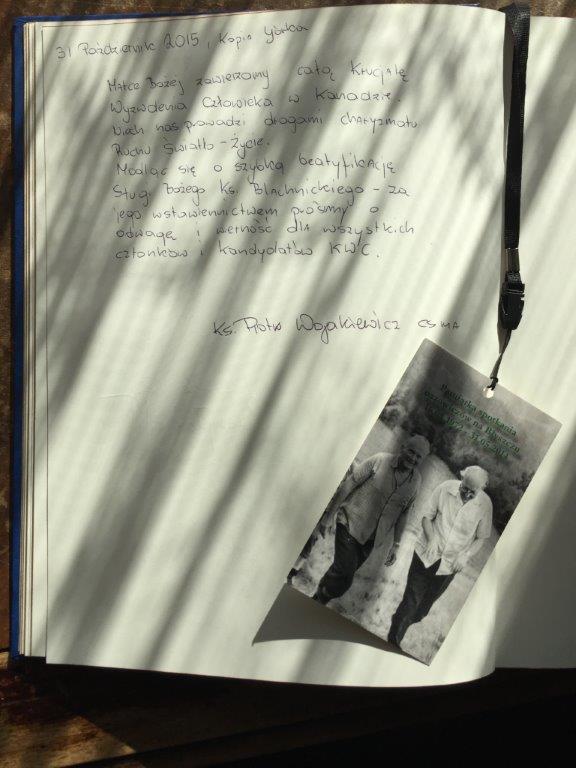 31 Październik 2015, Kopia Górka
Matce Bożej zawierzamy całą Krucjatę
Wyzwolenia Człowieka w Kanadzie.
Niech nas prowadzi drogami charyzmatu
Ruchu Światło-Życie.
Modląc się o szybką beatyfikację
Sługi Bożego Ks. Blachnickiego - za
jego wstawiennictwem prosimy o
odwagę i wierność dla wszystkich
członków i kandydatów KWC.
Ks. Piotr Wojakiewicz CSMA
Pamiątka spotkania
na Błyszczu